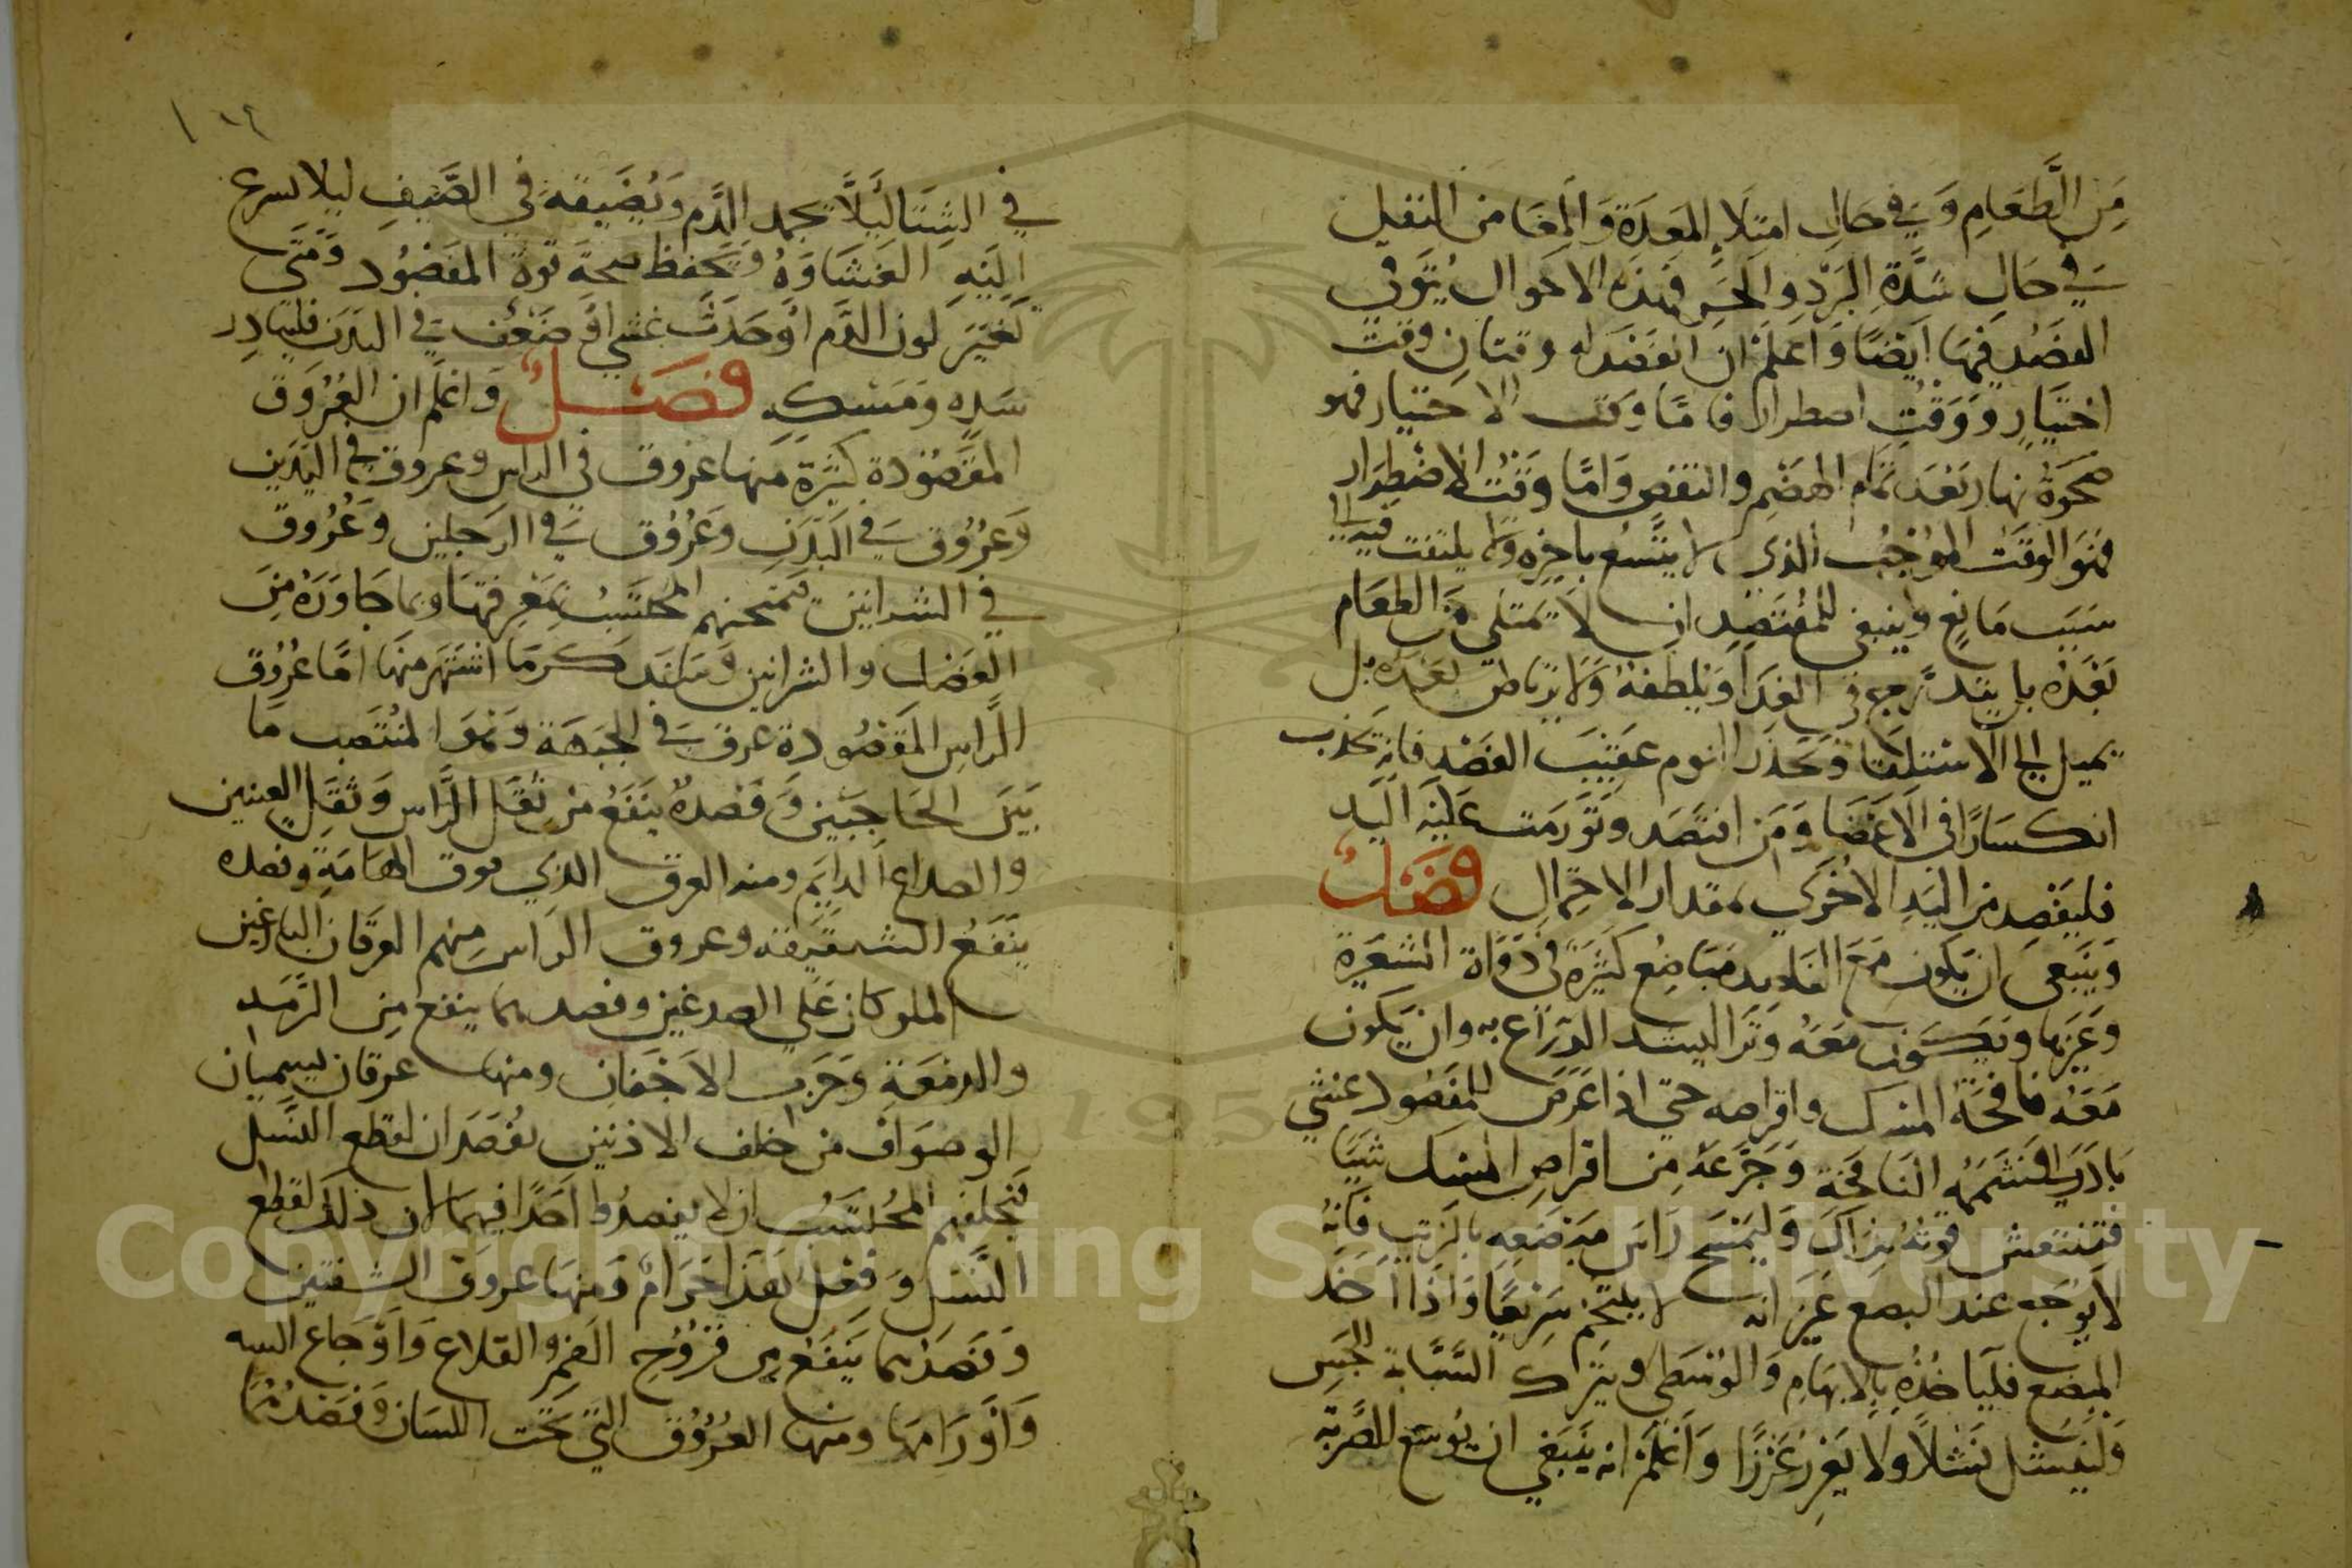 مِن الطَّعَامِ وَفي حَالِ امتِلَاءِ المعَدَة وَالمِعَا من الثقيل
في حَالِ شدَّةِ البَرْدِ والحَرِ فَهَذِه الاحوال يُتَوَقي
الفَصْد فيهَا ايْضًا وَاعلَمْ ان الفَصْد له وقتان وقت
اختيَارٍ وَوَقتِ اضطرار فامَّا وقت الاختيار فهو
ضَحْوَة نهار بَعْدَ تمام الهضْمِ والنقض وَامَّا وَقتُ الاضطِرَارِ
فهوَ الوقتُ الموُجبُ الذي لا يتَّسعُ تاخيره ولا يلتفت فيه الى
سَبَبٍ مَانعٍ وَينبغي للمُفتَصِدِ ان لا يمتلي مِن الطعَام
بَعْدَهُ بل يتدَرج في الغِدَا وَيُلطفهُ وَلا يرتاض بعْدَه بل
يميل الي الاستلقا وَيحذَر النوم عَقيْبَ الفصْد فانه يحدث
انكسَارًا في الاعْضَا وَمَن افتصَد وَتوَرمَت عَليْه اليَد
فليفْصِد من اليَدِ الاخْرَي بمقدار الاحتمال فصَلٌ
وَينبَغي ان يكون مَعَ الفاصد مبَاضِع كثيرَة في ذوَاة الشعَرَة
وَغيَرهَا ويَكوُن مَعَهُ وَتَرا ليشد الذرَاع به وان يكون
مَعَهُ نافجَة المسْك واقراصه حتي اذا عَرَض للمفصُود غشي
بَادَر فشَمَّهُ النافجَة وَجَرَّعَهُ مِن اقراص المسْك شَيًا
فتنتعش قوتهُ بذَاكَ وَليَمْسَح رَاس مبْضَعِه بالزيت فانهُ
لايُوجِع عند البضع غيَر انه لا يلتَحِم سَرِيعًا وَاذا اخَذ
المبضَع فليَاخذهُ بالابهَامِ وَالوُسْطى ويترك السَّبَّابة للجَسِ
وَلينشل نشْلاً ولا يَغرز غَرْزًا وَاعْلَمْ انه ينبَغي ان يُوسّع الضَّربَه
١٤
في الشِتَا لئلاَّ يجمد الدَّم وَيُضيِقهُ في الصَّيفِ ليلا يسرع
اليَهِ الغشاوَهُ وَيحفظ صحَة قوة المفصُود وَمَتَى
تغيَر لون الدَّم اوحَدَثَ غشي اوْ ضَعْف في البَدَن فليبَادِر
بشَدِه وَمَسْكِه فصَلٌ وَاعْلَم ان العُرُوق
المفصُودة كثيْرَة منها عرُوق في الراس وعروق في اليَدَين
وَعرُوُق في البَدَن وَعُرُوُق في الرجلين وَعُرُوق
في الشرايين فيَمتحنهم المحتسِبُ بمعْرفتهَا وبما جَاوَرَهُ مِنَ
العَضل والشرايين وَسَاند كرمَا اشتهر منهَا امَّا عُرُوُق
الرَّاسِ المفصُودة عرق في الجَبهَة وَهوَ المنتَصِب مَا
بَيَن الحاجبَين وَفصْدهُ ينفعُ من ثقلِ الرَّاس وَثقَلِ العينين
والصداع الدايم ومنه العرق الذي فوق الهامَةِ وفصده
ينفَعُ الشقيقه وعروق الراس منهم العرقان البارغين
الملوكان عَلي الصدغين وفصدهما ينفع مِن الرَّمَدِ
والدمعَة وَجَرَب الاجْفَان ومنها عرقان يسميَان
الوصوَاف من خلف الاذنين يفصَدان لقطع النسَل
فيَحلِفهم المحُتسَبُ ان لا يفصدُوا احَدًا فيهما لان ذلك لقطع
النسَل وَفعْل هَذَا حَرَامٌ وَمنهَا عروق الشفتين
وَفصْدهما ينفَعُ من قرُوُح الفمِ والقلاع وَاوجَاع اللثه
وَاَوْرَامهَا ومنها العُرُوُق التي تحت اللسَان وَفصْدُهُمَا